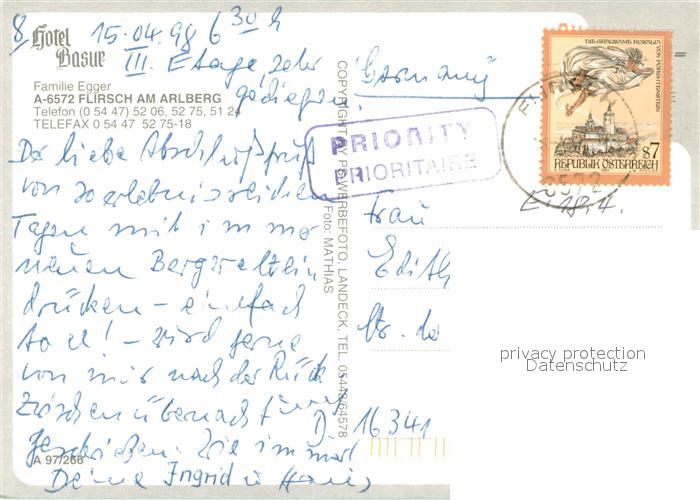 8
Hotel
Basur
15.04.98 6 30 h
III. Etage, sehr
gediegen
Germany
Familie Egger
A-6572 FLIRSCH AM ARLBERG
Telefon (0 54 47) 52 06, 52 75, 51 24
TELEFAX 0 54 47 52 75-18
Der liebe Abschiedsgruß
von so erlebnisreichen
Tagen mit immer
neuen
drücken – einfach
toll! – wird gerne
von mir nach der Rück
geschrieben. Wie immer
Deine Ingrid u.
A 97/266
COPYRIGHT BY PS WERBEFOTO, LANDECK, TEL. 05442/64578
Foto: MATHIAS
PRIORITY
PRIORITAIRE
DIE GRAUSAME ROSALIA
VON FORCHTENSTEIN
S7
REPUBLIK ÖSTERREICH
6572
E. 18.4.
Frau
Edith
Str. de
D 16341
privacy protection
Datenschutz